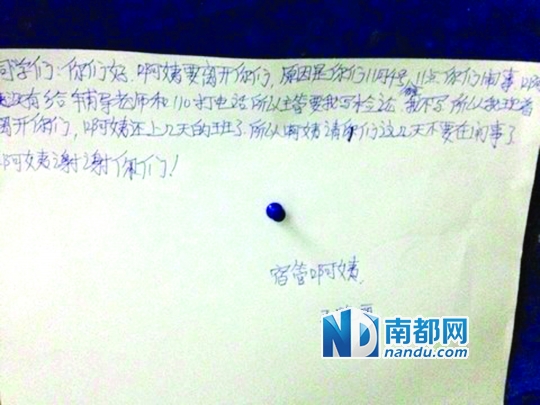 同学们:你们好.啊姨要离开你们,原因是你们11月4号晚11点你们闹事.啊
没有给辅导老师和110打电话所以主管要我写检讨.我不写.所以我现在
离开你们,啊姨还上几天的班了.所以啊姨请你们这几天不要在闹事了
啊姨谢谢你们!
宿管啊姨.
ND 南都网
nandu.com